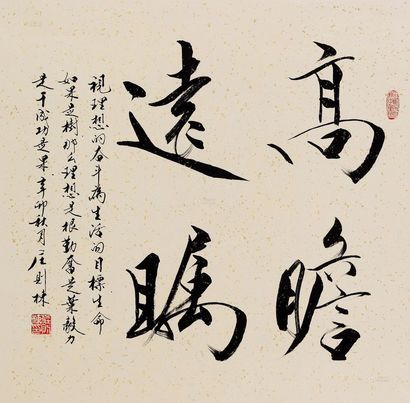 高瞻
遠矚
視理想的奋斗為生活的目標生命
如果是樹那么理想是根勤奮是葉毅力
是干成功是果辛卯秋月庄則棟